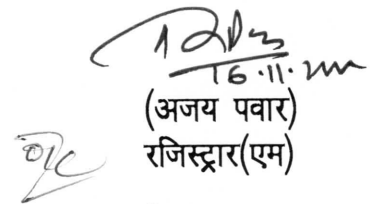 16.11.
(अजय पवार)
रजिस्ट्रार(एम)